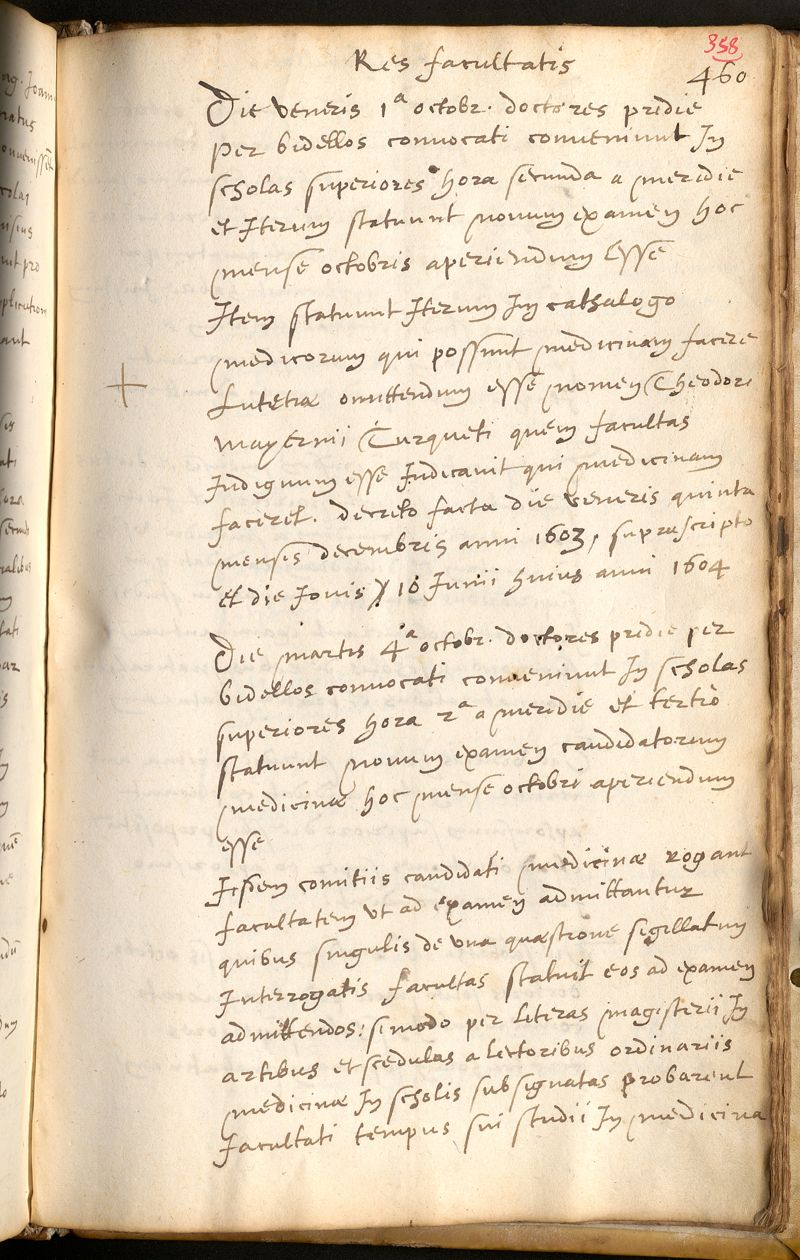 358
Res facultatis
460
Die veneris 1ª octobr. doctores pridie
per bidellos convocati conveniunt In
scholas superiores hora secunda a meridie
et Iterum statuunt novum examen hoc
mense octobris aperiendum esse
Item statuunt Iterum In cathalogo
medicorum qui possunt medicinam facere
Lutetiæ omittendum esse nomen Theodori
Mayernii Turqueti quem facultas
Indignum esse Iudicavit qui medicinam
faceret. decreto facto die veneris quinta
mensis decembris anni 1603, suprascripto
et die Iovis 10 Iunii huius anni 1604
Die martis 4ª octobr. doctores pridie per
bidellos convocati conveniunt In scholas
superiores hora 2ª a meridie et tertiò
statuunt novum examen candidatorum
medicinæ hoc mense octobri aperiendum
esse
Iisdem comitiis candidati medicinæ rogant
facultatem ut ad examen admittantur
quibus singulis de una quæstione sigillatim
Interrogatis facultas statuit eos ad examen
admittendos: si modo per literas magisterii In
artibus et scedulas a lectoribus ordinariis
medicinæ In scholis subsignatas probarent
facultati tempus sui studii In medicina